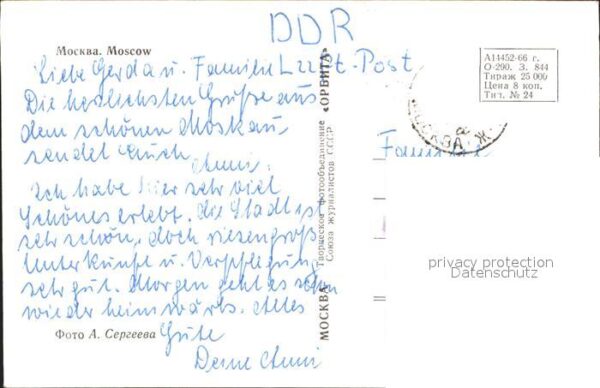 DDR
Москва. Moscow
Liebe Gerda u. Familie
Luft-Post
Die herzlichsten Grüße aus
dem schönen Moskau
sendet Euch
Anni.
Ich habe hier sehr viel
Schönes erlebt. die Stadt ist
sehr schön, doch riesengroß
Unterkunft u. Verpflegung
sehr gut. Morgen geht es schon
wieder heimwärts. Alles
Gute
Deine Anni
Фото А. Сергеева
МОСКВА. Творческое фотообъединение «ОРБИТА»
Союза журналистов СССР
А14452-66 г.
О-200. З. 844
Тираж 25 000
Цена 8 коп.
Тит. № 24
МОСКВА Ж
Familie
privacy protection
Datenschutz